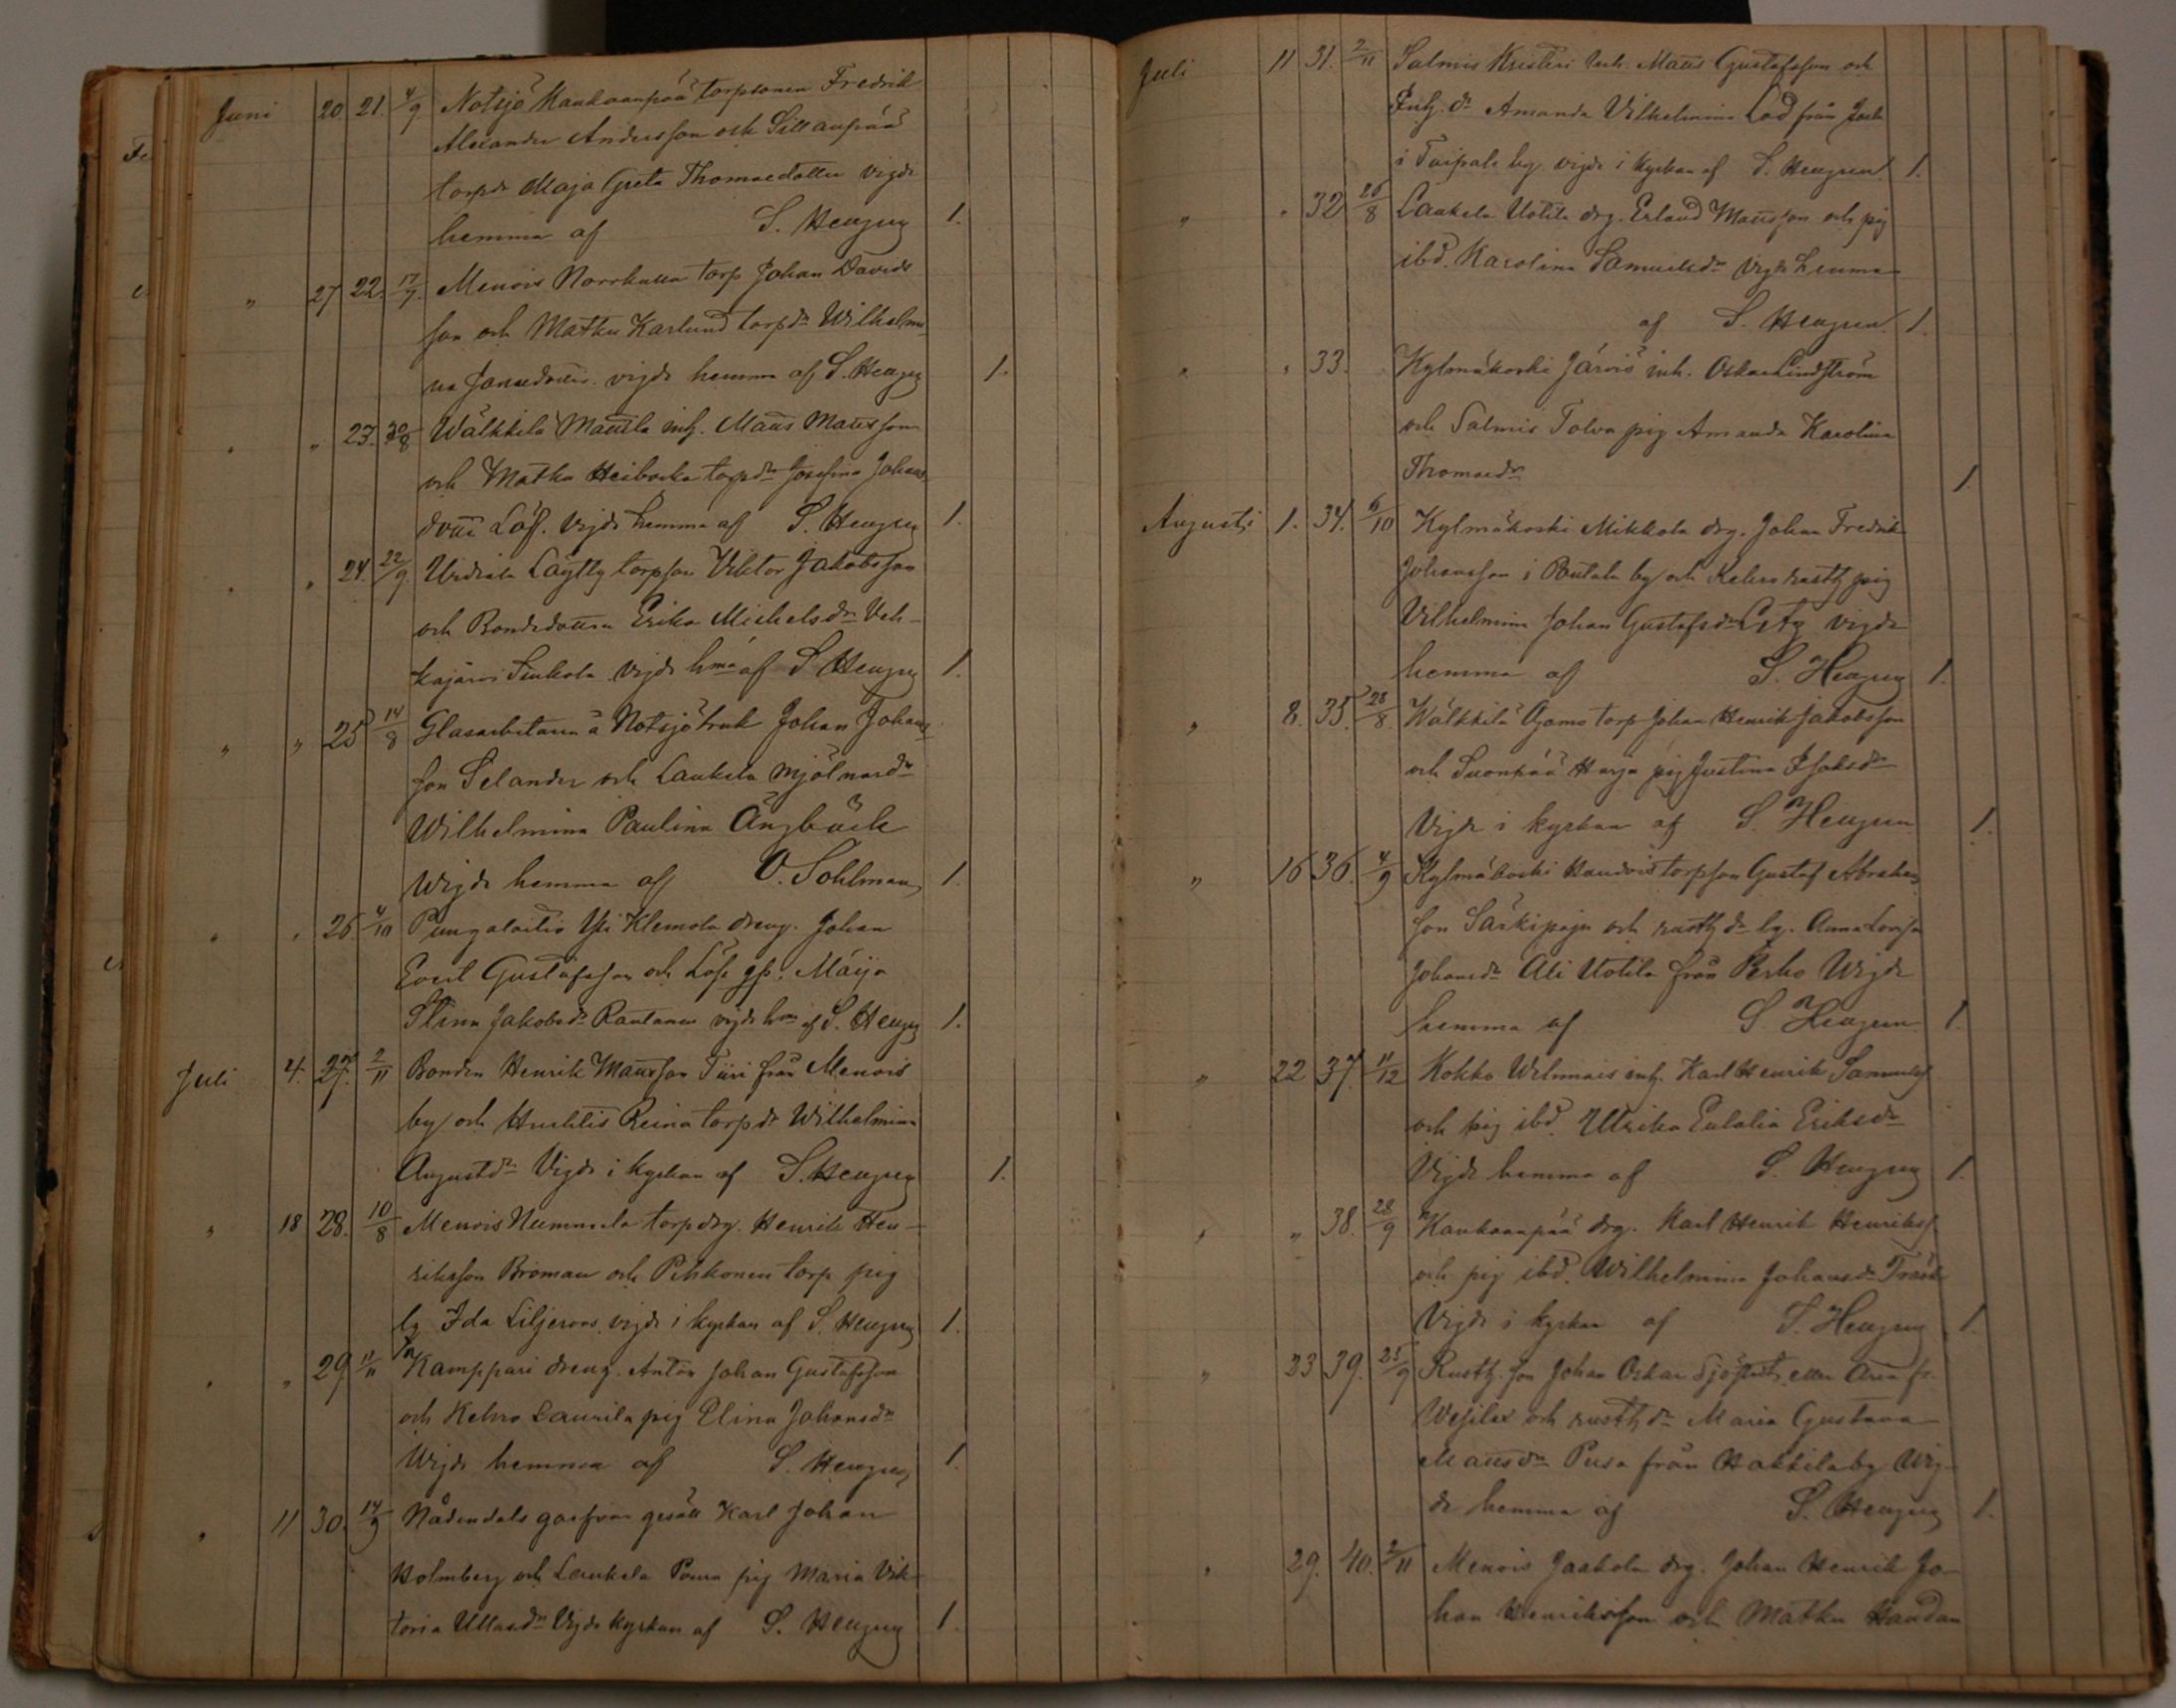 Juni 20. 21. 4/9 Notsjö Kankaanpää torpsonen Fredrik
Alexander Andersson och Sillanpää
torpdr Maja Greta Thomaedotter vigde
hemma af S. Hengren 1.
" 27 22. 17/9. Menois Norrkulla torp Johan Davids
son och Matku Karlund torpdr Wilhelmi
na Jonaedotter. vigde hemma af S. Hengren 1.
" " 23. 30/8 Wälkkilä Maunla inh. Matts Mattsson
och Matku torpdr Josefina Johans
dott Löf. Vigde hemma af S. Hengren 1.
" " 24. 22/9. Urdiala Läylly torpson Viktor Jakobsson
och Bondedottren Erika Michelsdr Veh-
kajärvi Sinkola vigde hma af S. Hengren 1.
" " 25 14/8 Glasarbetaren å Notsjö bruk Johan Johans
son Selander och Laukela mjölnaredr
Wilhelmina Paulina Ängbäck
Wigde hemma af O. Sohlman 1.
" " 26. 4/10 Pungalaitio Yli Klemola dreng. Johan
Evert Gustafsson och Maija
Stina Jakobsdr Rantanen vigde hm af S. Hengren 1.
Juli 4. 27. 2/11 Bonden Henrik Mattsson Tiiri från Menois
by och Huhtis Reina torpdr Wilhelmina
Augustdr Vigde i kyrkan af S. Hengren 1.
" 18 28. 10/8 Menois Nummela torpdrg. Henrik Hen-
riksson Broman och Pihkonen torp pig
lg Ida Liljeroos vigde i kyrkan af S. Hengren 1.
" " 29 11/11 Kamppari dreng. Anton Johan Gustafsson
och Kehro Laurila pig Elina Johansdr
Wigde hemma af S. Hengren 1.
" 11 30. 14/9 Nådendals garfvar gesäll Karl Johan
Holmberg och Laukela pig Maria Vik
toria Ullasdr Vigde kyrkan af S. Hengren 1.
Juli 11 31. 2/11 Salmis Kristeri inh. Matts Gustafsson och
Inh. dr Amanda Vilhelmina Lod från
i Taipale by vigde i kyrkan af S. Hengren 1.
" " 32 26/8 Laukela Uotila drg. Erland Mattsson och pig
ibd. Karolina Samuelsdr Vigde hemma
af S. Hengren 1.
" " 33. Kylmäkoski Järvis inh. Oskar Lindström
och Salmis Tolva pig Amanda Karolina
Thomaedr 1
Augusti 1. 34. 6/10 Kylmäkoski Mikkola drg. Johan Fredrik
Johansson i Pentala by och Kehro rusth pig
Vilhelmina Johan Gustafsdr vigde
hemma af S. Hengren 1.
" 8. 35. 28/8. Wälkkilä Ojamo torp Johan Henrik Jakobsson
och Suonpää Harja pig Justina Isaksdr
Vigde i kyrkan af S. Hengren 1.
" 16 36. 4/9 Kylmäkoski Haudois torpson Gustaf Abrahams
son Särkipaju och rusth dr lg. Anna Lovisa
Johansdr Ali Uotila från Perho Wigde
hemma af S. Hengren 1.
" 22 37. 11/12 Kokko Welmais inh. Karl Henrik Samuels
och pig ibd. Ulrika Eulalia Eriksdr
Vigde hemma af S. Hengren 1.
" " 38. 28/9 Kankaanpää drg. Karl Henrik Henrikss
och pig ibd. Wilhelmina Johansdr Träsk
Vigde i kyrkan af S. Hengren 1.
" 23 39. 25/9 Rusth. son Johan Oskar Sjöstedt eller fr.
Wesilax och rusthdr Maria Gustava
Mattsdr Pusa från Hakkila by Wig-
de hemma af S. Hengren 1.
" 29. 40. 2/11 Menois Jaakola drg. Johan Henrik Jo-
han Henriksson och Matku Haudan